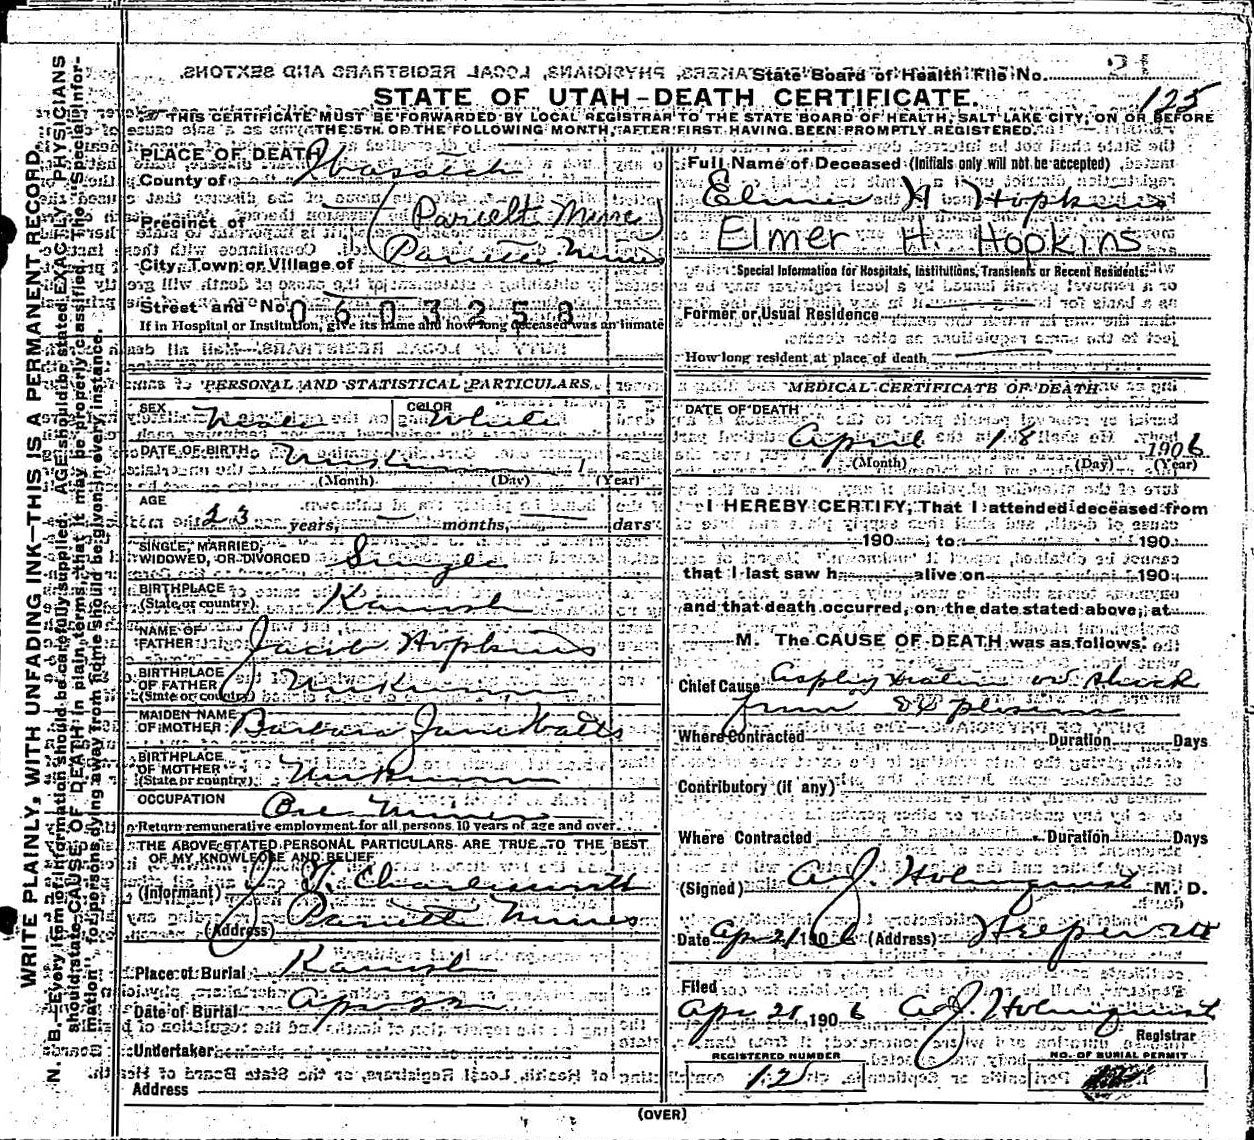 State Board of Health File No. 21
STATE OF UTAH-DEATH CERTIFICATE.
125
THIS CERTIFICATE MUST BE FORWARDED BY LOCAL REGISTRAR TO THE STATE BOARD OF HEALTH, SALT LAKE CITY, ON OR BEFORE
THE 5TH OF THE FOLLOWING MONTH, AFTER FIRST HAVING BEEN PROMPTLY REGISTERED.
WRITE PLAINLY, WITH UNFADING INK—THIS IS A PERMANENT RECORD.
N. B.—Every item of information should be carefully supplied. AGE should be stated EXACTLY. PHYSICIANS
should state CAUSE OF DEATH in plain terms, that it may be properly classified. The "Special Infor-
mation" for persons dying away from home should be given in every instance.
PLACE OF DEATH
County of Wasatch
Precinct of (Pariett Mine)
City, Town or Village of Pariette Mines
Street and No.
0603258
If in Hospital or Institution, give its name and how long deceased was an inmate
PERSONAL AND STATISTICAL PARTICULARS
SEX Male COLOR White
DATE OF BIRTH Unknown 1
(Month) (Day) (Year)
AGE 23 years, — months, — days
SINGLE, MARRIED,
WIDOWED, OR DIVORCED Single
BIRTHPLACE
(State or country) Kanosh
NAME OF
FATHER Jacob Hopkins
BIRTHPLACE
OF FATHER Unknown
(State or country)
MAIDEN NAME
OF MOTHER Barbara Jane Watts
BIRTHPLACE
OF MOTHER Unknown
(State or country)
OCCUPATION Ore Miner
Return remunerative employment for all persons 10 years of age and over.
THE ABOVE STATED PERSONAL PARTICULARS ARE TRUE TO THE BEST
OF MY KNOWLEDGE AND BELIEF
(Informant) J.
(Address) Pariette Mines
Place of Burial Kanosh
Date of Burial Apr 22
Undertaker
Address
Full Name of Deceased (Initials only will not be accepted)
Elmer H Hopkins
Elmer H. Hopkins
Special Information for Hospitals, Institutions, Transients or Recent Residents.
Former or Usual Residence
How long resident at place of death
MEDICAL CERTIFICATE OF DEATH
DATE OF DEATH
April 18 1906
(Month) (Day) (Year)
I HEREBY CERTIFY, That I attended deceased from
190 to 190
that I last saw h alive on 190
and that death occurred, on the date stated above, at
M. The CAUSE OF DEATH was as follows:
Chief Cause Asphyxiation or shock
from Explosion
Where Contracted Duration Days
Contributory (if any)
Where Contracted Duration Days
(Signed) A.J. Holmquist M. D.
Date Apr 21 1906 (Address)
Filed
Apr 21, 1906 A.J. Holmquist
Registrar
REGISTERED NUMBER
12
NO. OF BURIAL PERMIT
(OVER)